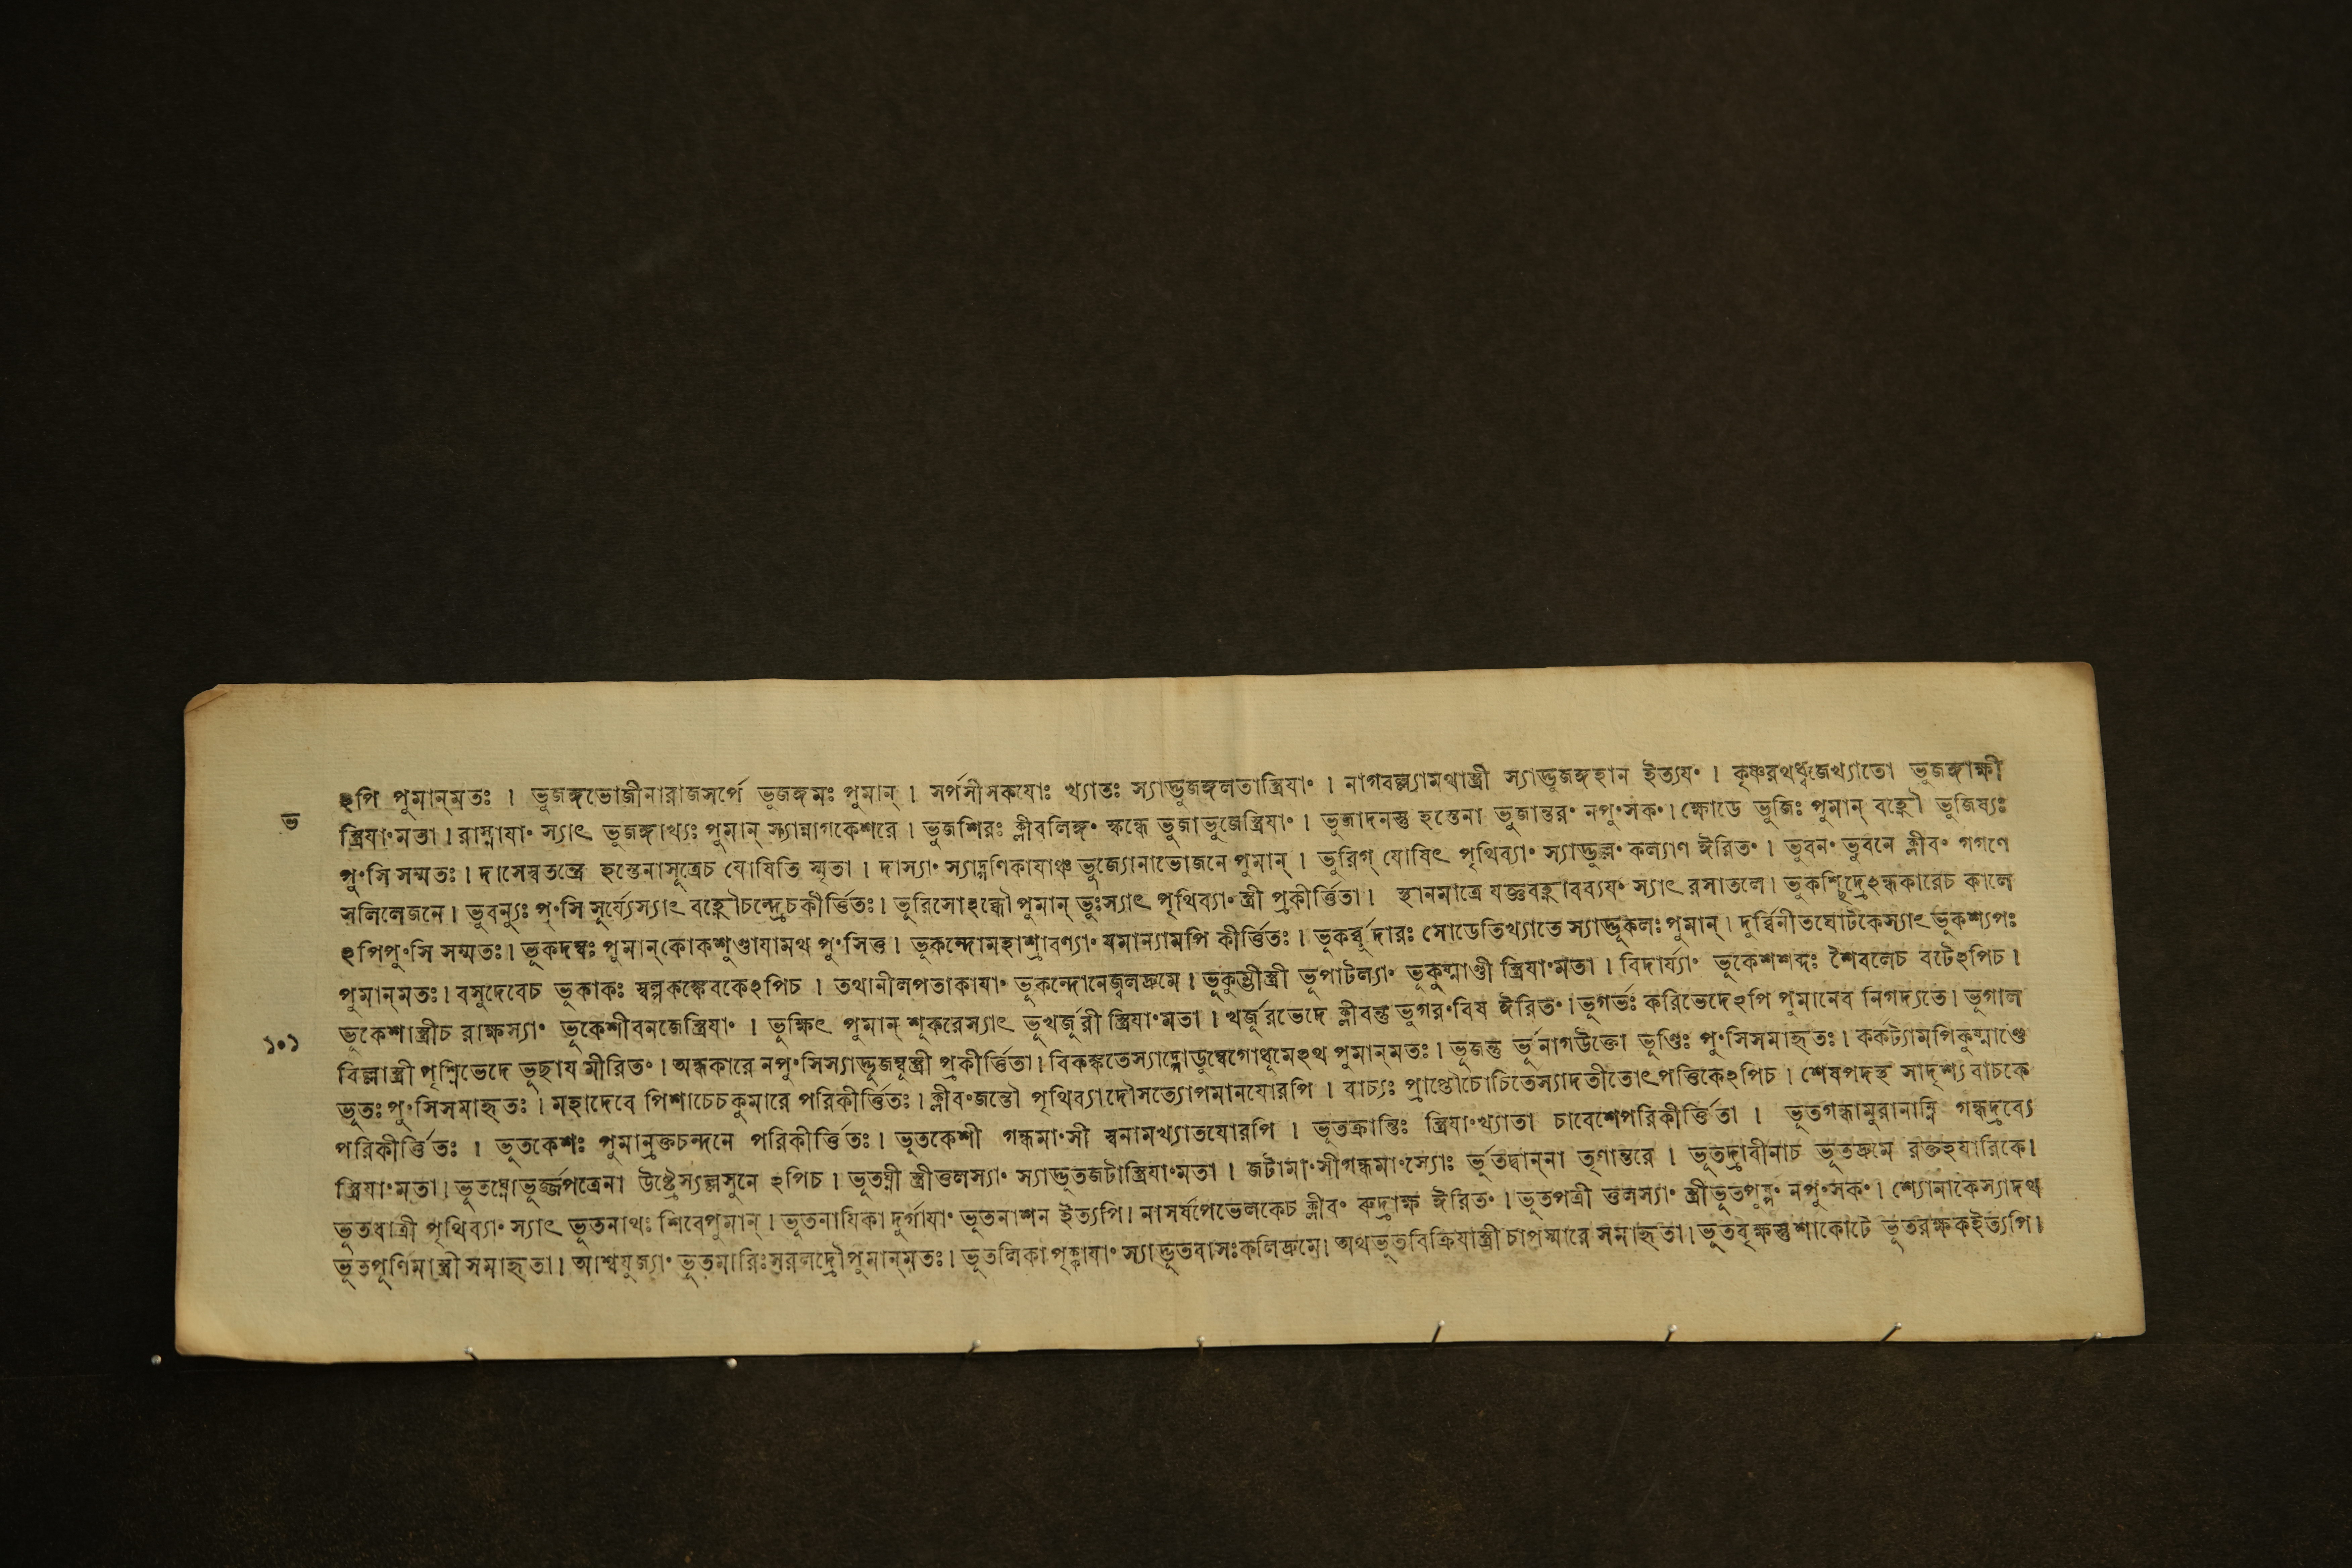 ঽপি পুমান্মতঃ । ভুজঙ্গভোজীনারাজসর্পে ভুজঙ্গমঃ পুমান্ । সর্পসীসকযোঃ খ্যাতঃ স্যাদ্ভুজঙ্গলতাস্ত্রিযাং । নাগবল্ল্যামথাস্ত্রী স্যাদ্ভুজঙ্গহান ইত্যযং । কৃষ্ণরথধ্বজেখ্যাতো ভুজঙ্গাক্ষী
ভ
স্ত্রিযাংমতা । রাস্নাযাং স্যাৎ ভুজঙ্গাখ্যঃ পুমান্ স্যান্নাগকেশরে । ভুজশিরঃ ক্লীবলিঙ্গং স্কন্ধে ভুজাভুজেস্ত্রিযাং । ভুজাদনস্তু হস্তেনা ভুজান্তরং নপুংসকং । ক্ষোডে ভুজিঃ পুমান্ বহ্নৌ ভুজিষ্যঃ
পুংসি সম্মতঃ । দাসেস্বতন্ত্রে হস্তেনাসূত্রেচ যোষিতি স্মৃতা । দাস্যাং স্যাদ্গণিকাযাঞ্চ ভুজ্যোনাভোজনে পুমান্ । ভুরিগ্ যোষিৎ পৃথিব্যাং স্যাদ্ভুল্লং কল্যাণ ঈরিতং । ভুবনং ভুবনে ক্লীবং গগণে
সলিলেজনে । ভুবন্যুঃ পুংসি সূর্য্যেস্যাৎ বহ্নৌচন্দ্রেচকীর্ত্তিতঃ । ভুরিসোঽব্ধৌ পুমান্ ভুঃস্যাৎ পৃথিব্যাং স্ত্রী প্রকীর্ত্তিতা । স্থানমাত্রে যজ্ঞবহ্নাবব্যযং স্যাৎ রসাতলে । ভুকশ্ছিদ্রেঽন্ধকারেচ কালে
ঽপিপুংসি সম্মতঃ । ভূকদম্বঃ পুমান্কোকশুণ্ডাযামথ পুংসিত্ত । ভূকন্দোমহাশ্রাবণ্যাং যমান্যামপি কীর্ত্তিতঃ । ভূকর্ব্বুদারঃ সোডেতিখ্যাতে স্যাদ্ভূকলঃ পুমান্ । দুর্ব্বিনীতঘোটকেস্যাৎ ভূকশ্যপঃ
পুমান্মতঃ । বসুদেবেচ ভূকাকঃ স্বল্পকঙ্কেবকেঽপিচ । তথানীলপতাকাযাং ভূকন্দোনেজ্বলদ্রুমে । ভূকুম্ভীস্ত্রী ভূপাটল্যাং ভূকুষ্মাণ্ডী স্ত্রিযাংমতা । বিদার্য্যাং ভূকেশশব্দঃ শৈবলেচ বটেঽপিচ ।
ভূকেশাস্ত্রীচ রাক্ষস্যাং ভূকেশীবনজেস্ত্রিযাং । ভূক্ষিৎ পুমান্ শূকরেস্যাৎ ভূখর্জুরী স্ত্রিযাংমতা । খর্জূরভেদে ক্লীবন্তু ভূগরংবিষ ঈরিতং । ভূগর্ভঃ করিভেদেঽপি পুমানেব নিগদ্যতে । ভূগাল
১০১
বিল্লাস্ত্রী পৃশ্নিভেদে ভূছায মীরিতং । অন্ধকারে নপুংসিস্যাদ্ভূজম্বূস্ত্রী প্রকীর্ত্তিতা । বিকঙ্কতেস্যাদ্গোডুম্বেগোধূমেঽথ পুমান্মতঃ । ভূজন্তু র্ভূনাগউক্তো ভূণ্ডিঃ পুংসিসমাহৃতঃ । কর্কট্যামপিকুষ্মাণ্ডে
ভূতঃ পুংসিসমাহৃতঃ । মহাদেবে পিশাচেচকুমারে পরিকীর্ত্তিতঃ । ক্লীবংজন্তৌ পৃথিব্যাদৌসত্যোপমানযোরপি । বাচ্যঃ প্রাপ্তৌচোচিতেস্যাদতীতোৎপত্তিকেঽপিচ । শেষপদস্থ সাদৃশ্য বাচকে
পরিকীর্ত্তিতঃ । ভূতকেশঃ পুমান্রক্তচন্দনে পরিকীর্ত্তিতঃ । ভূতকেশী গন্ধমাংসী স্বনামখ্যাতযোরপি । ভূতক্রান্তিঃ স্ত্রিযাংখ্যাতা চাবেশেপরিকীর্ত্তিতা । ভূতগন্ধামুরানাম্নি গন্ধদ্রব্যে
স্ত্রিযাংমতা । ভূতঘ্নোভূর্জ্জপত্রেনা উষ্ট্রেস্যল্লসুনে ঽপিচ । ভূতঘ্নী স্ত্রীত্তলস্যাং স্যাদ্ভূতজটাস্ত্রিযাংমতা । জটামাংসীগন্ধমাংস্যোঃ র্ভূতদ্বান্না তৃণান্তরে । ভূতদ্রাবীনাচ ভূতদ্রুমে রক্তহযারিকে ।
ভূতধাত্রী পৃথিব্যাং স্যাৎ ভূতনাথঃ শিবেপুমান্ । ভূতনাযিকা দুর্গাযাং ভূতনাশন ইত্যপি । নাসর্ষপেভেলকেচ ক্লীবং রুদ্রাক্ষ ঈরিতং । ভূতপত্রী ত্তলস্যাং স্ত্রীভূতপুষ্পং নপুংসকং । শ্যোনাকেস্যাদথ
ভূতপূর্ণিমাস্ত্রী সমাহৃতা । আশ্বযুজ্যাং ভূতমারিঃসরলদ্রৌপুমান্মতঃ । ভূতলিকা পৃক্কাযাং স্যাদ্ভূতবাসঃকলিদ্রুমে । অথভূতবিক্রিযাস্ত্রী চাপস্মারে সমাহৃতা । ভূতবৃক্ষস্তুশাকোটে ভূতরক্ষকইত্যপি ।